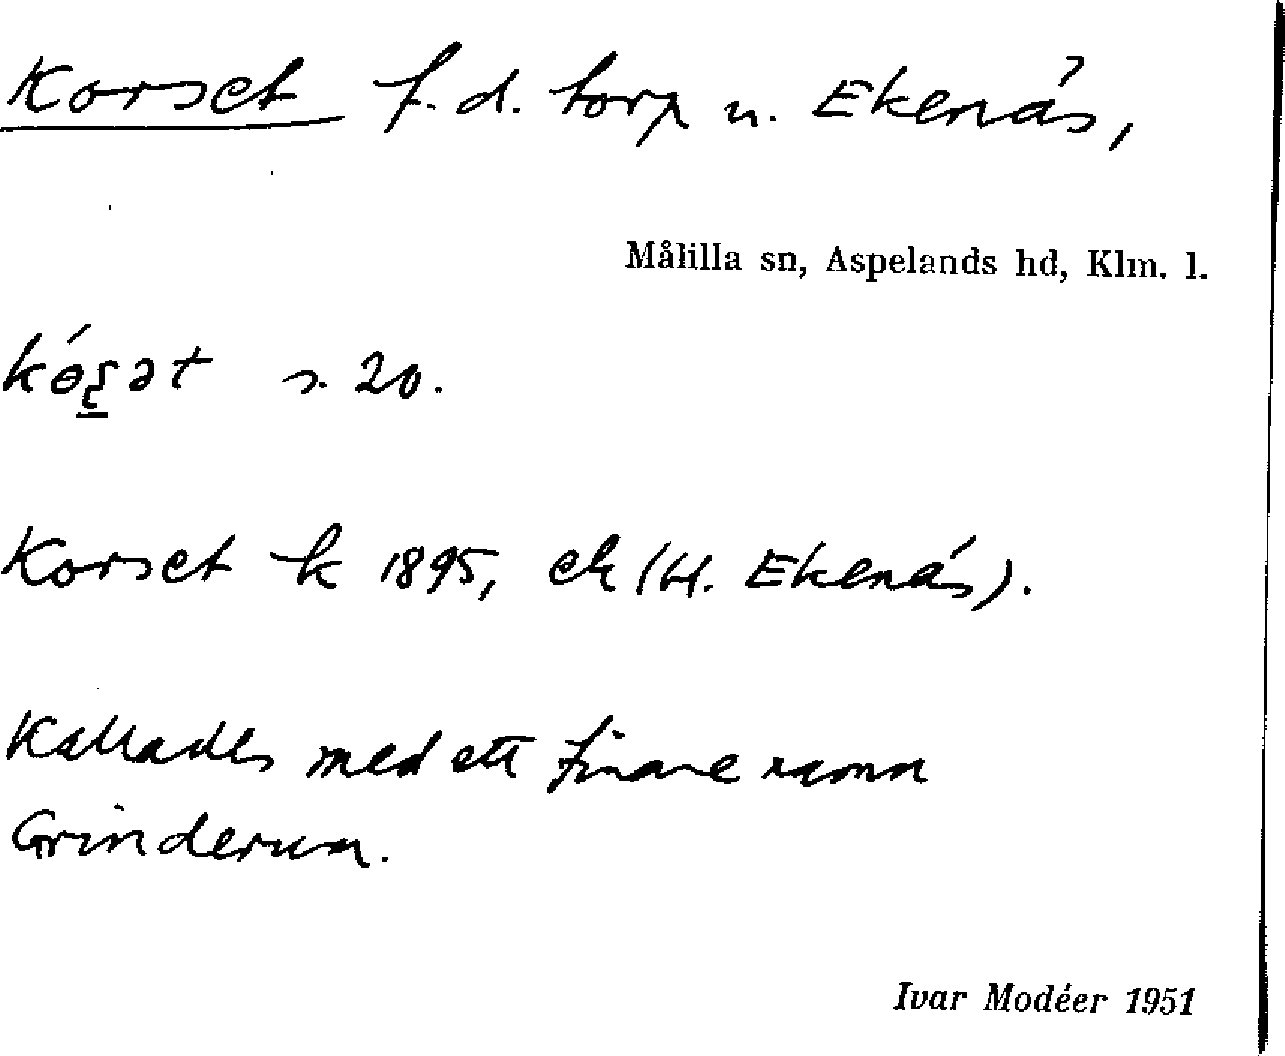 Korset f.d. torp u. Ekenäs,
Målilla sn, Aspelands hd, Klm. l.
s. 20.
Korset k 1895, ek (H. Ekenäs).
Kallades med ett finare namn
Grinderum.
Ivar Modéer 1951